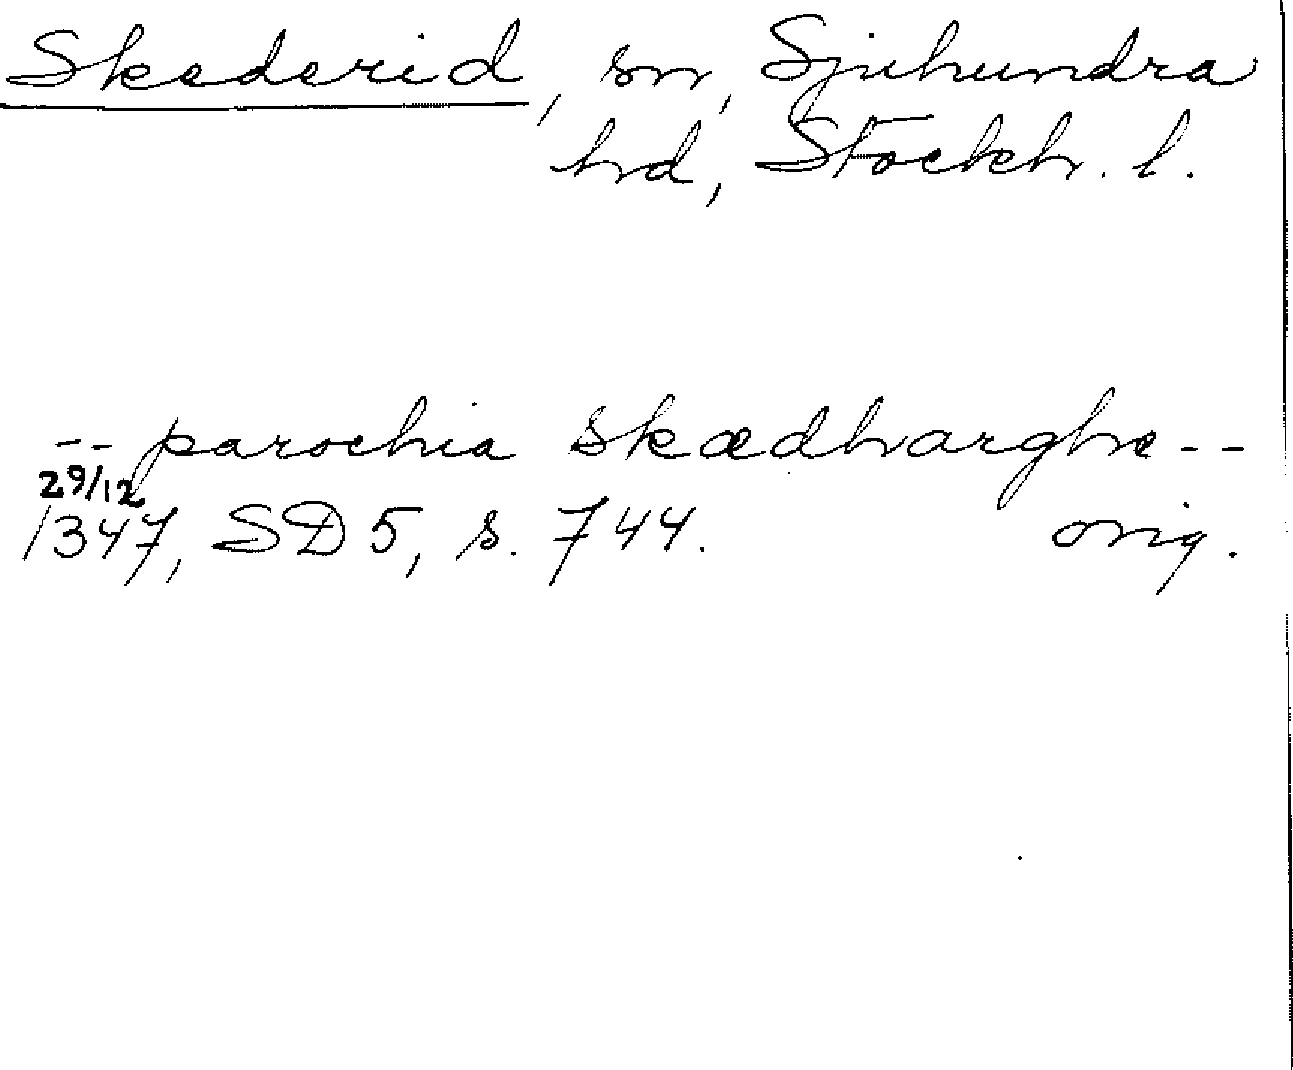 Skederid, sn, Sjuhundra
hd, Stockh. l.
-- parochia Skædharghe --
29/12
1347, SD 5, s. 744. orig.